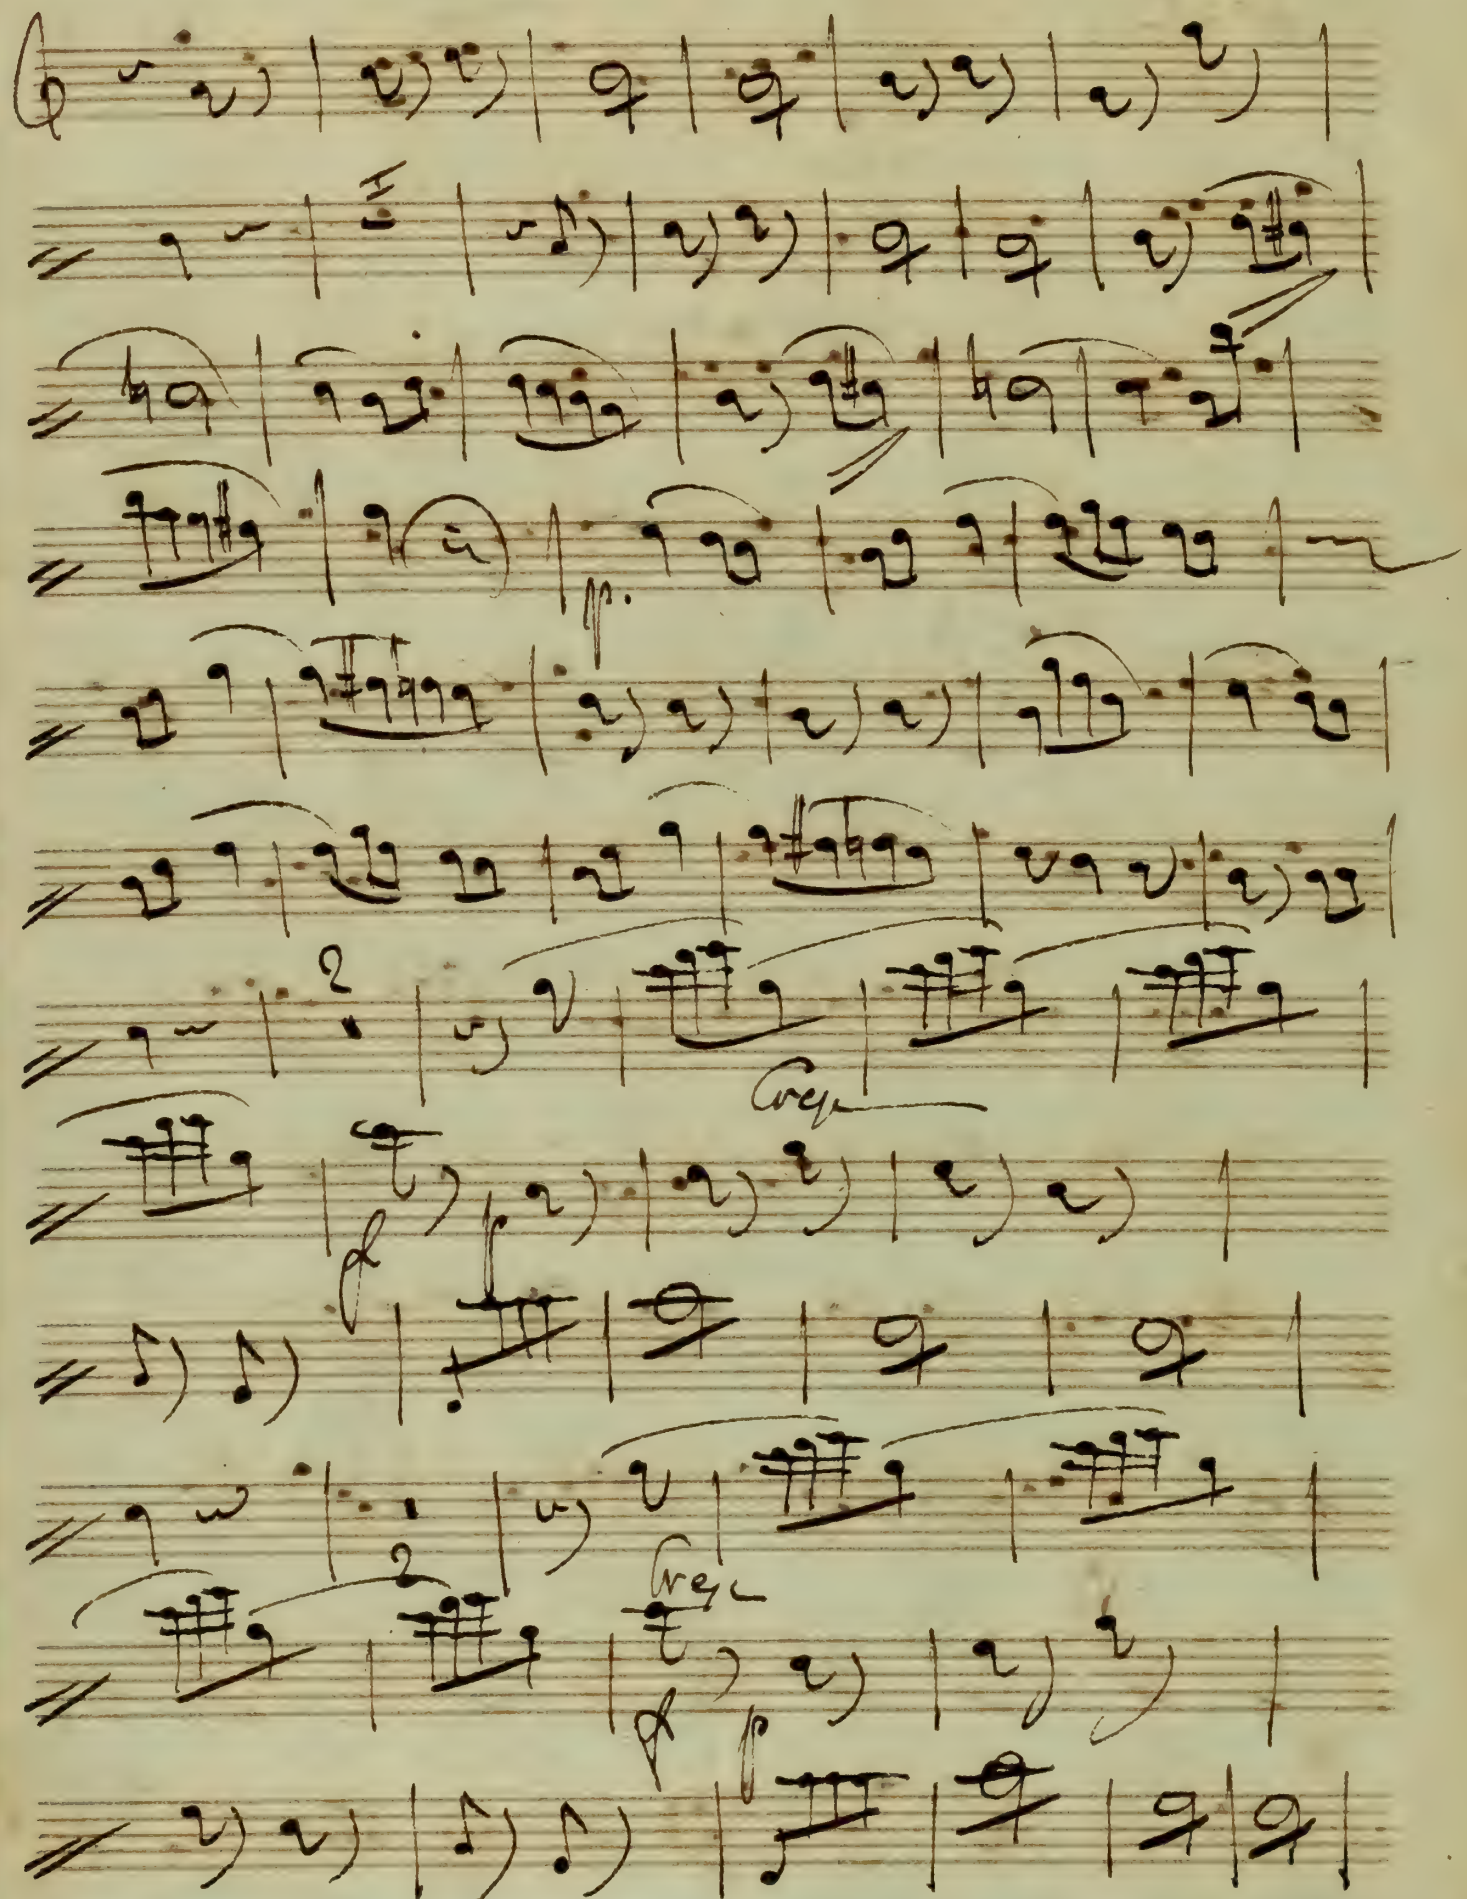 p.
2
Cresc
f p
2
Cresc
f p